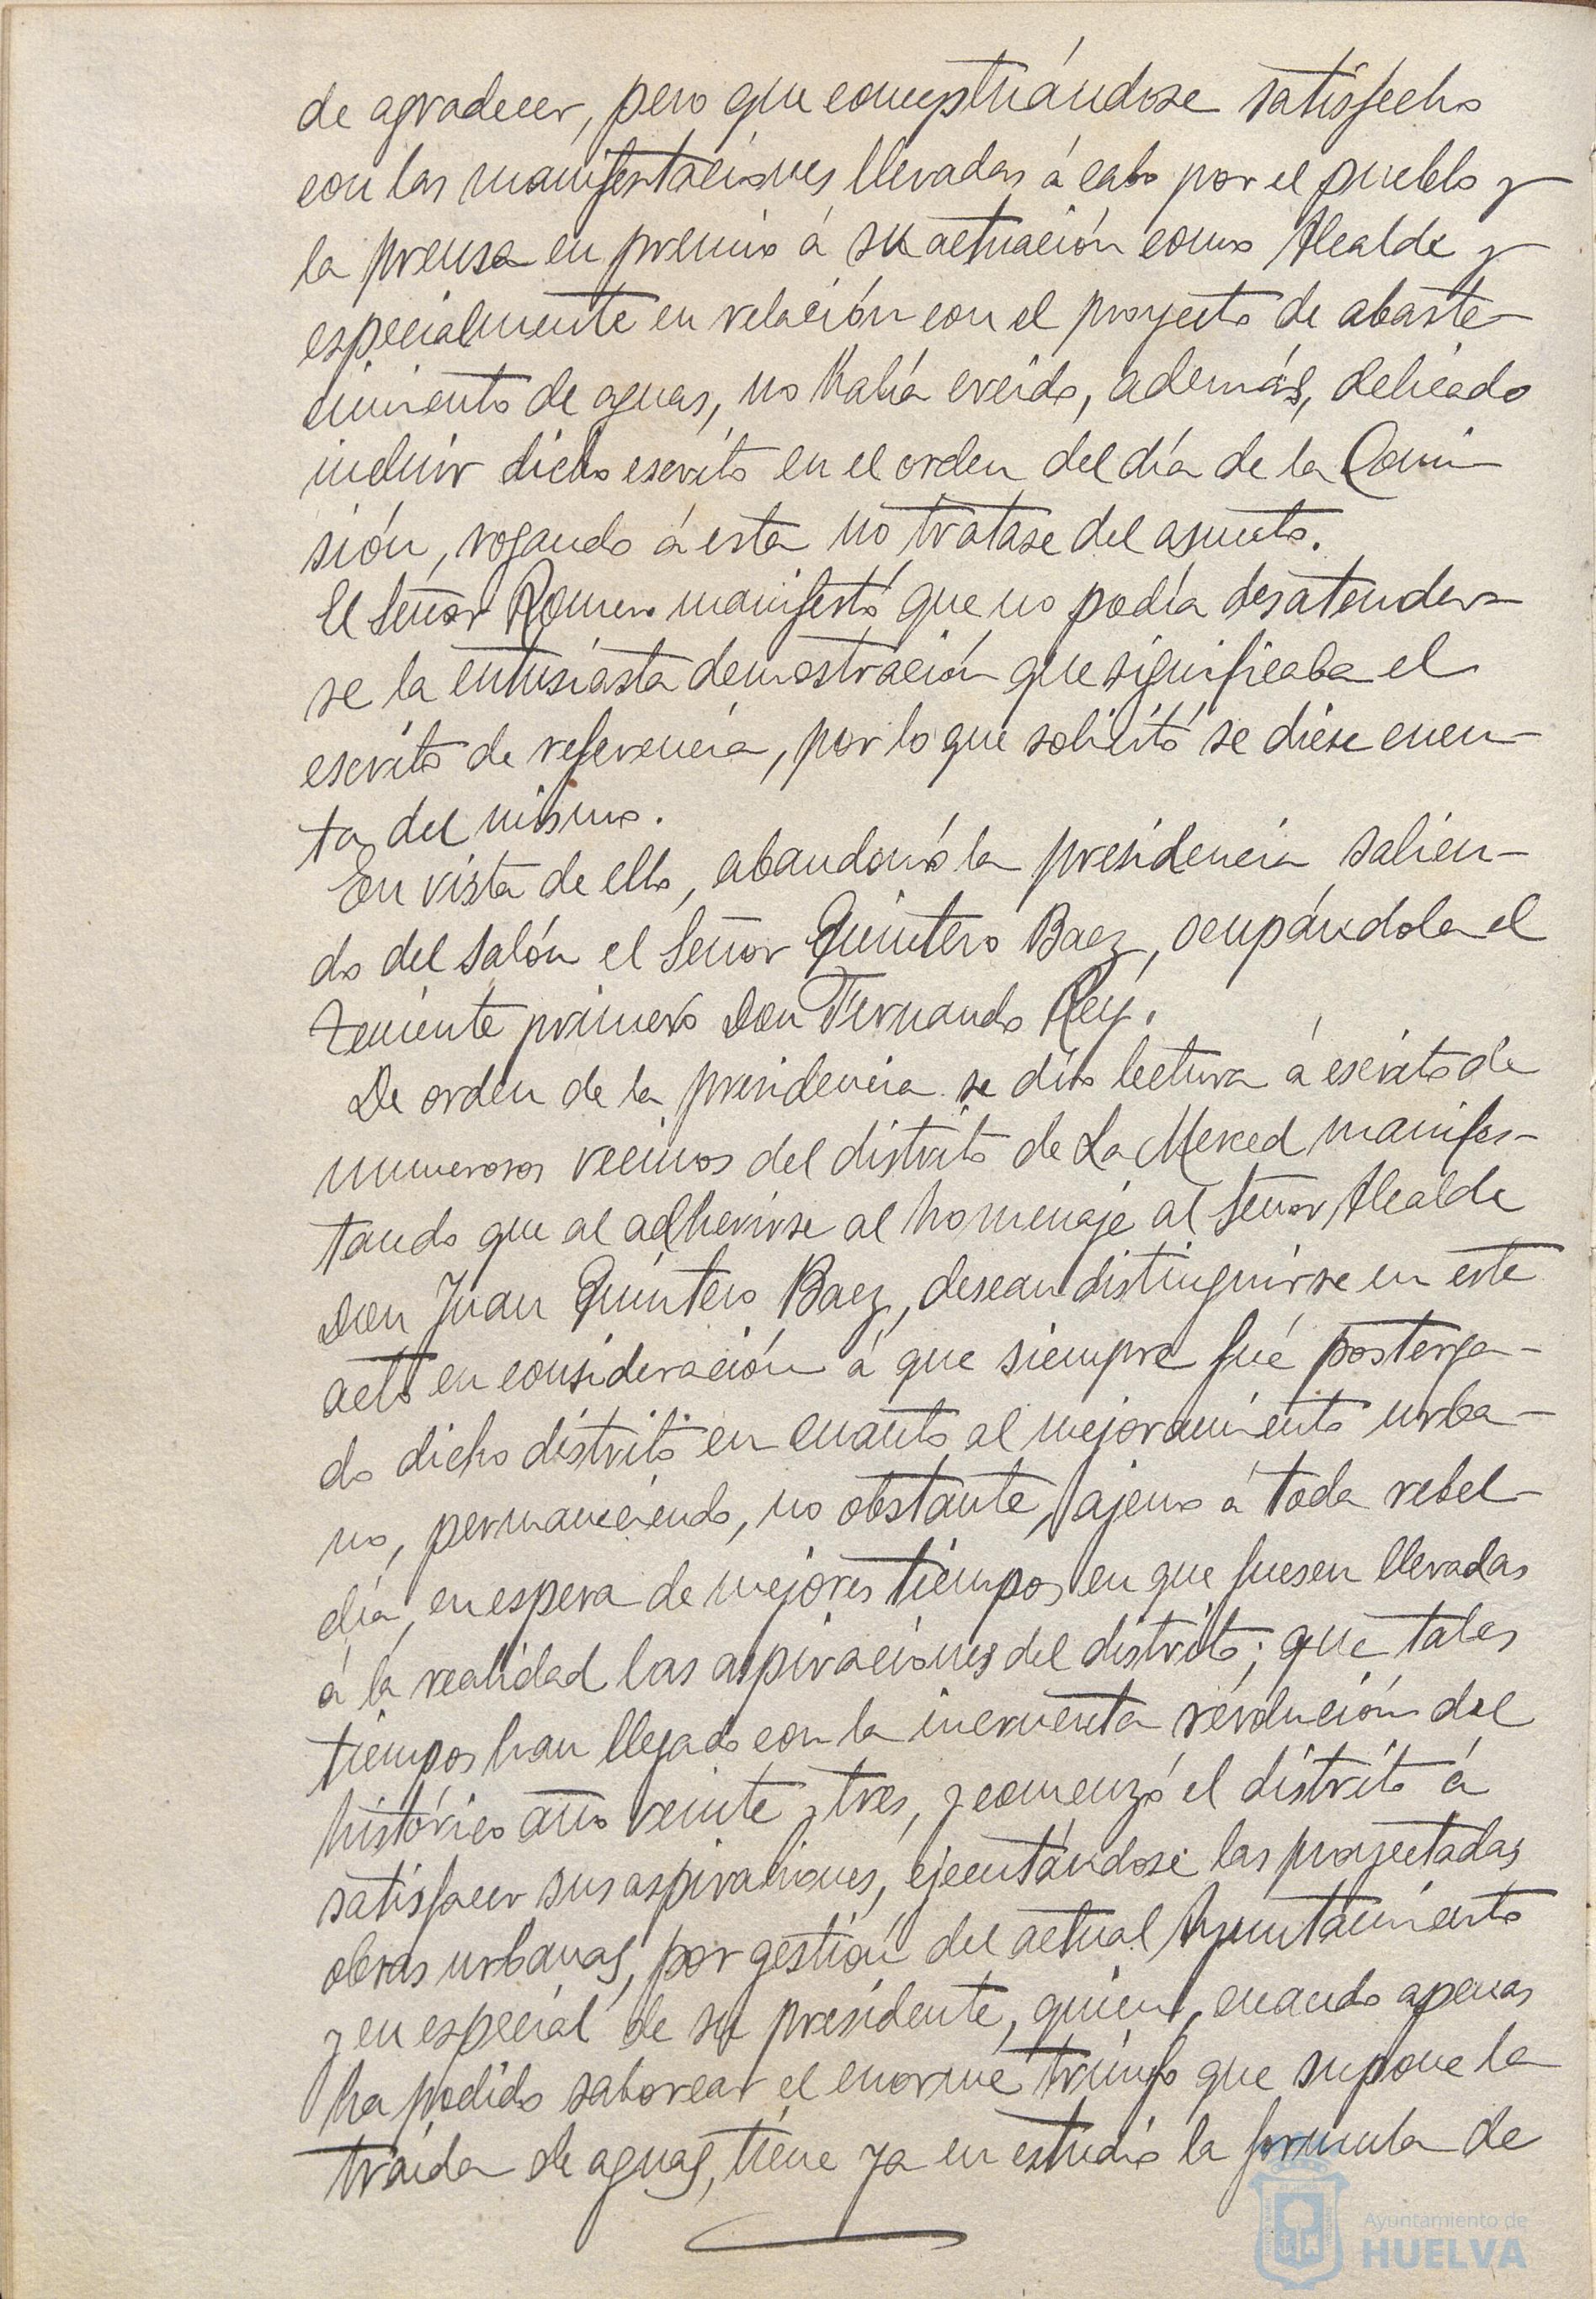 de agradecer, pero que conceptuándose satisfecho
con las manifestaciones llevadas á cabo por el pueblo y
la prensa en premio á su actuación como Alcalde y
especialmente en relación con el proyecto de abaste-
cimiento de aguas, no había creido, además, delicado
incluir dicho escrito en el orden del día de la Comi-
sión, rogando á esta no tratase del asunto.
El Señor Romero manifestó que no podía desatender-
se la entusiasta demostración que significaba el
escrito de referencia, por lo que solicitó se diese cuen-
ta del mismo.
En vista de ello, abandonó la presidencia salien-
do del salón el Señor Quintero Baez, ocupándola el
teniente primero Don Fernando Rey.
De orden de la presidencia se dió lectura á escrito de
numerosos vecinos del distrito de La Merced manifes-
tando que al adherirse al homenaje al Señor Alcalde
Don Juan Quintero Baez, desean distinguirse en este
acto en consideración á que siempre fué posterga-
do dicho distrito en cuanto al mejoramiento urba-
no, permaneciendo, no obstante, ajeno á toda rebel-
día, en espera de mejores tiempos en que fuesen llevadas
á la realidad las aspiraciones del distrito; que tales
tiempos han llegado con la incruenta revolución del
histórico año veinte y tres, y comenzó el distrito á
satisfacer sus aspiraciones, ejecutándose las proyectadas
obras urbanas, por gestión del actual Ayuntamiento
y en especial de su presidente, quien, cuando apenas
ha podido saborear el enorme triunfo que supone la
traida de aguas, tiene ya en estudio la formula de
Ayuntamiento de
HUELVA